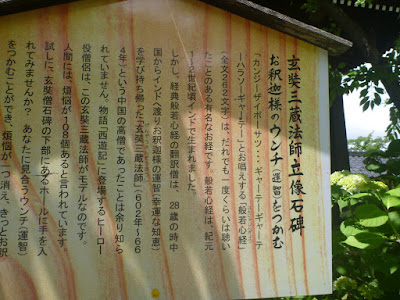 玄奘三蔵法師立像石碑
お釈迦様のウンチ(運智)をつかむ
「カンジーザイボーサツ・・・ギャーテーギャーテ
ーハラソーギャーテー」とお唱えする「般若心経」
(全文262文字)は、だれでも一度くらいは聴い
たことのある有名なお経です。般若心経は、紀元
世紀頃インドで生まれました。
しかし、経典般若心経の翻訳僧は、28歳の時中
国からインドへ渡りお釈迦様の運智(幸運な知恵)
を学び持ち帰った「玄奘三蔵法師」(602年~66
4年)という中国の高僧であったことは余り知ら
れていません。物語「西遊記」に登場するヒーロー
役僧侶は、この玄奘三蔵法師がモデルなのです。
人間には、煩悩が108個あると言われています
試しに、玄奘僧石碑の下部にあるホールに手を入
れてみませんか? あなたに見合うウンチ(運智)
をつかむことができ、煩悩が一つ消え、きっとお釈